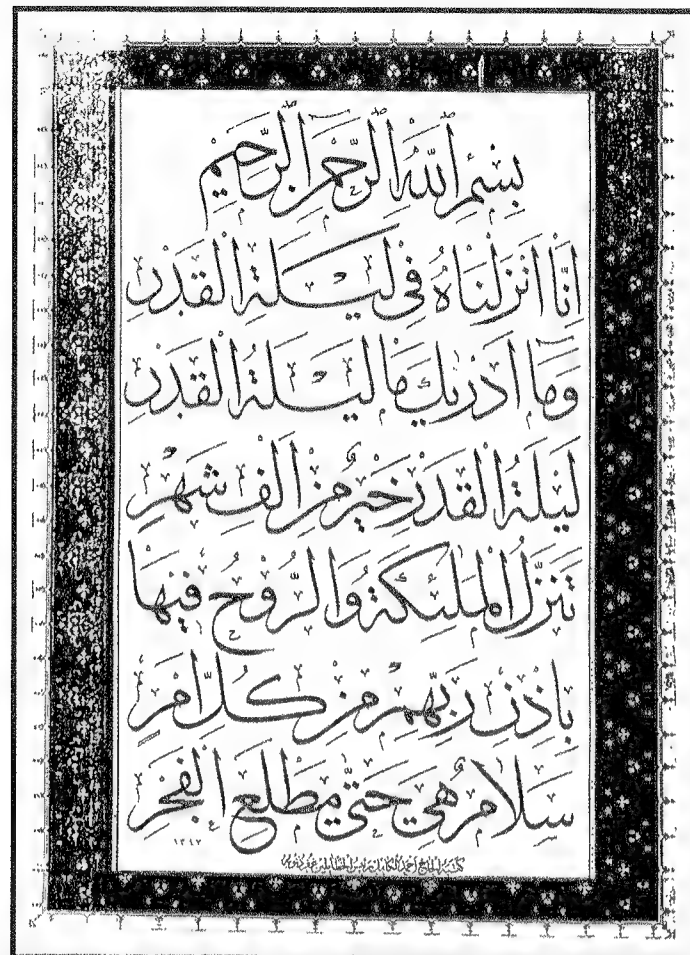 بِسْمِ اللّٰهِ الرَّحْمٰنِ الرَّحِيْمِ
اِنَّا اَنْزَلْنَاهُ فِي لَيْلَةِ الْقَدْرِ
وَمَا اَدْرٰيكَ مَا لَيْلَةُ الْقَدْرِ
لَيْلَةُ الْقَدْرِ خَيْرٌ مِنْ اَلْفِ شَهْرٍ
تَنَزَّلُ الْمَلٰئِكَةُ وَالرُّوْحُ فِيْهَا
بِاِذْنِ رَبِّهِمْ مِنْ كُلِّ اَمْرٍ
سَلَامٌ هِيَ حَتّٰى مَطْلَعِ الْفَجْرِ
١٣٤٢
كتبه الحاج احمد الكامل